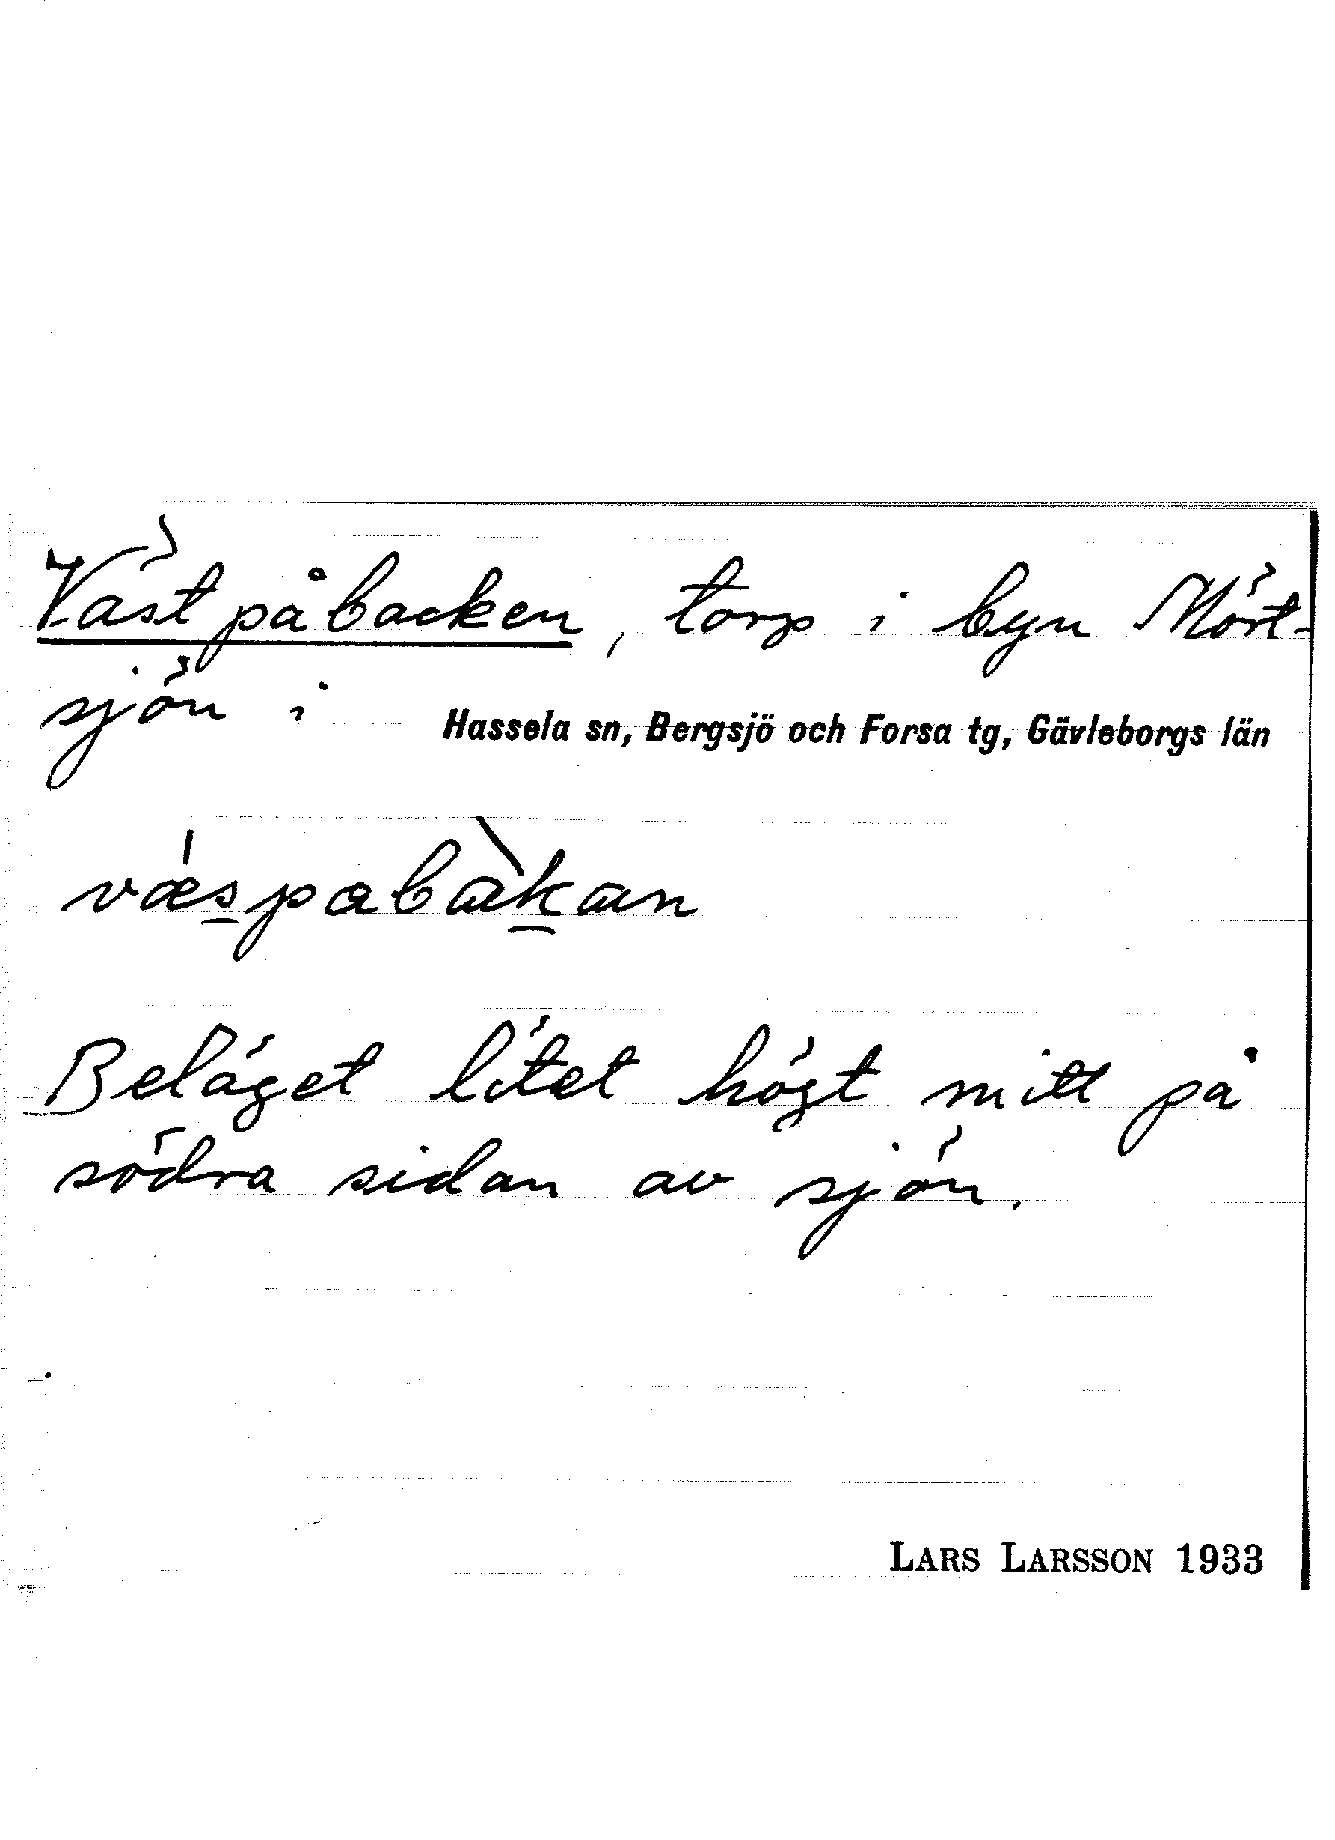 Väst på backen, torp i byn Mört-
sjön i Hassela sn, Bergsjö och Forsa tg, Gävleborgs län
vǽspabàkan
Beläget litet högt mitt på
södra sidan av sjön.
LARS LARSSON 1933